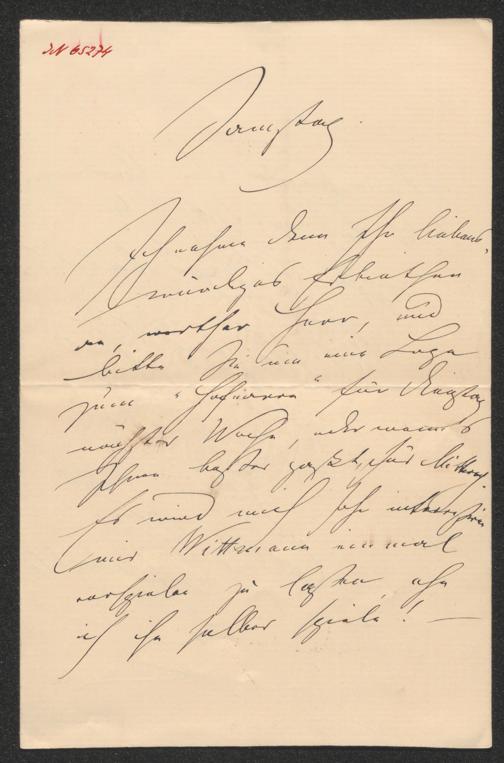 JN 65274
Samstag.
Ich nehme denn Ihr liebens-
würdiges Erbiethen
an, werther Herr, und
bitte Sie um eine Loge
zum "Hofnarr" für Dienstag
nächster Woche, oder wenn's
Ihnen besser paßt, für Mittwoch.
Es wird mich sehr interessiren
mir Wittmann einmal
vorspielen zu lassen, ehe
ich ihn selber spiele! —